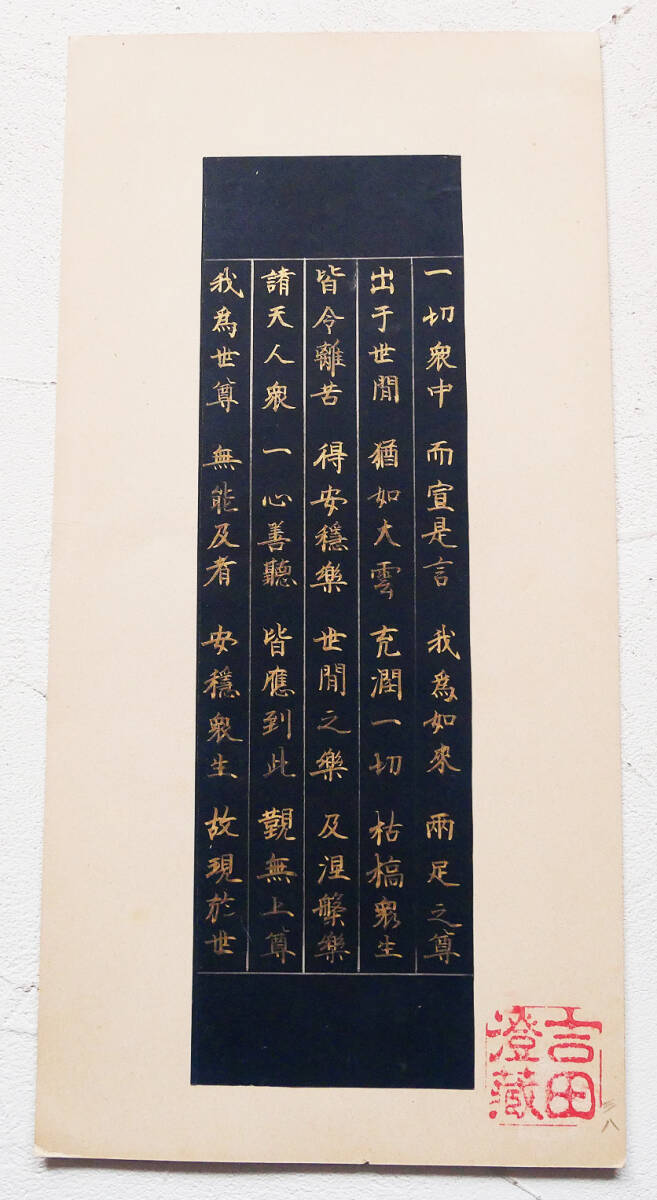 一切衆中 而宣是言 我為如來 兩足之尊
出于世間 猶如大雲 充潤一切 枯槁衆生
皆令離苦 得安穩樂 世間之樂 及涅槃樂
諸天人衆 一心善聽 皆應到此 覲無上尊
我為世尊 無能及者 安穩衆生 故現於世
吉田
澄藏
三八